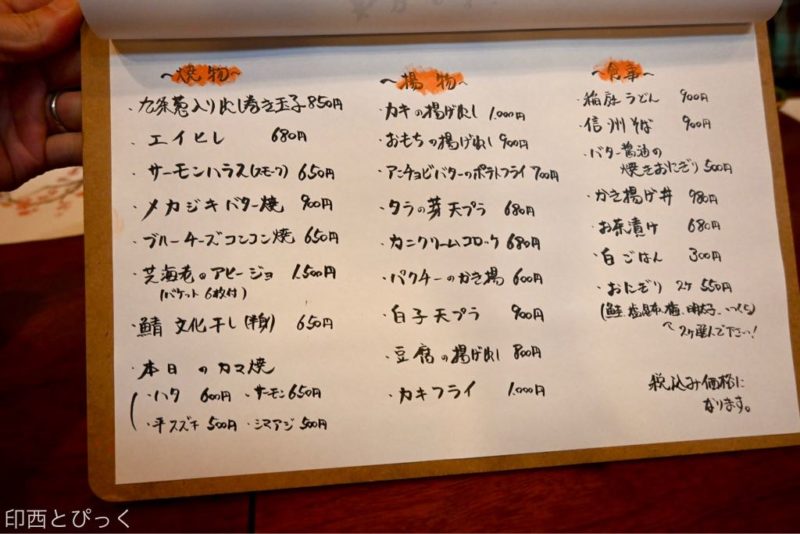 ~焼物~
・九条葱入り出し巻き玉子 850円
・エイヒレ 680円
・サーモンハラス(スモーク) 650円
・メカジキバター焼 900円
・ブルーチーズコンコン焼 650円
・芝海老のアヒージョ 1.500円
(バケット6枚付)
・鯖 文化干し(半身) 650円
・本日のカマ焼
・ハタ 600円 ・サーモン 650円
・平スズキ 500円 ・シマアジ 500円
~揚物~
・カキの揚げ出し 1.000円
・おもちの揚げ出し 900円
・アンチョビバターのポテトフライ 700円
・タラの芽天プラ 680円
・カニクリームコロッケ 680円
・パクチーのかき揚 600円
・白子天プラ 900円
・豆腐の揚げ出し 800円
・カキフライ 1.000円
~食事~
・稲庭うどん 900円
・信州そば 900円
・バター醤油の
焼きおにぎり 500円
・かき揚げ丼 980円
・お茶漬け 680円
・白ごはん 300円
・おにぎり 2ケ 550円
(鮭、塩昆布、梅、明太子、いくら)
2ケ選んで下さい!
税込み価格に
なります。
印西とぴっく